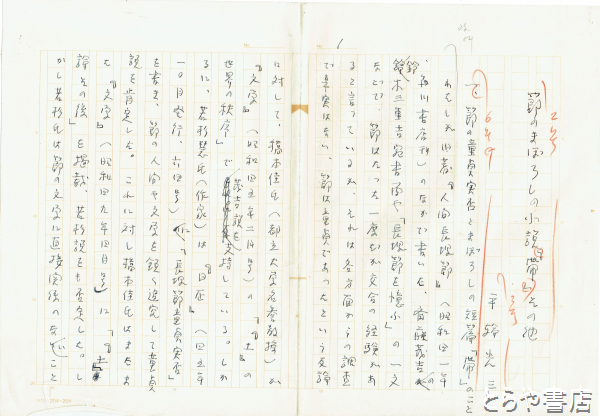 節のまぼろしの小説「帯」その他
平輪光三
一 節の童貞実否とまぼろしの短篇「帯」のこと
わたしが旧著『人間長塚節』(昭和二一年
市川書店刊)のなかで書いた、斎藤茂吉の
鈴木三重吉宛書簡や「長塚節を憶ふ」の一文
などで、節はたった一度だが交合の経験があ
ると言っているが、それは各方面からの調査
で事実はない、節は童貞であったという反論
に対して、橋本佳氏(都立大学名誉教授)が
『文学』(昭和四五年二月号)の「『土』の
世界の秩序」で茂吉説を支持している。しか
るに、若杉慧氏(作家)は『日在』(四五年
一〇月発行、六四号)に「長塚節童貞実否」
を書き、節の人間や文学を鋭く追究して童貞
説を肯定した。これに対し橋本佳氏はまたま
た『文学』(昭和四九年四月号)に「『土』
論その後」を掲載、若杉説をも否定した。し
かし若杉氏は節の文学に直接関係のないこと
とらや書店